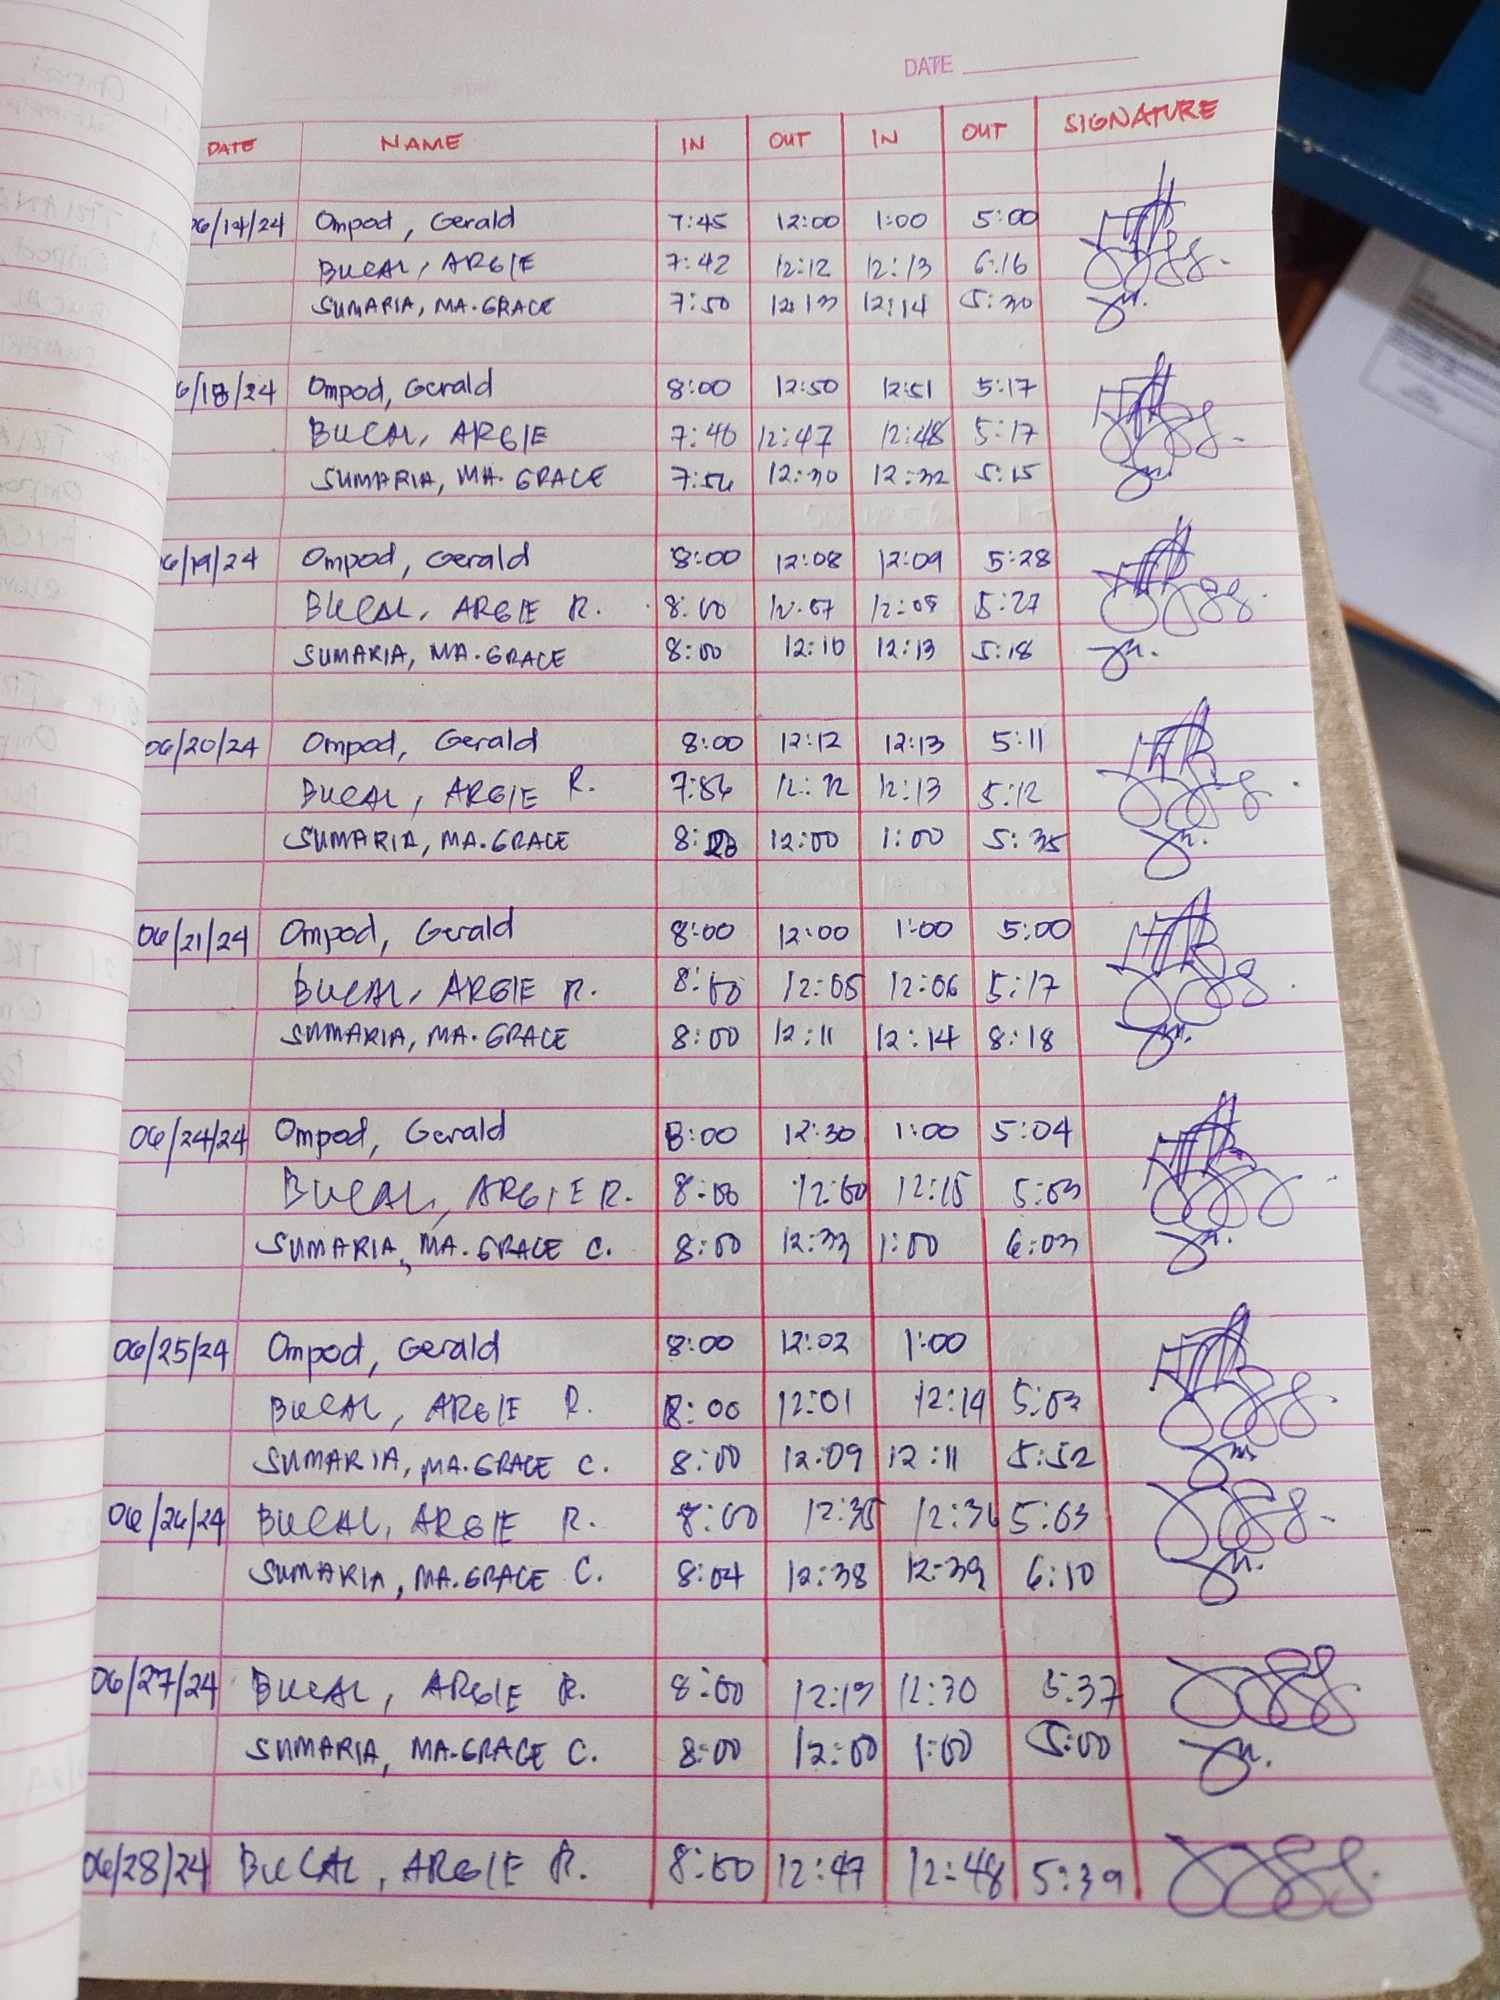 DATE
DATE NAME IN OUT IN OUT SIGNATURE
06/14/24 Ompod, Gerald 7:45 12:00 1:00 5:00
BUCAL, ARGIE 7:42 12:12 12:13 6:16
SUMARIA, MA. GRACE 7:50 12:13 12:14 5:30
6/18/24 Ompod, Gerald 8:00 12:50 12:51 5:17
BUCAL, ARGIE 7:46 12:47 12:48 5:17
SUMARIA, MA. GRACE 12:30 12:32 5:15
6/19/24 Ompod, Gerald 8:00 12:08 12:09 5:28
BUCAL, ARGIE R. 8:00 12:07 12:08 5:27
SUMARIA, MA. GRACE 8:00 12:10 12:13 5:18
06/20/24 Ompod, Gerald 8:00 12:12 12:13 5:11
BUCAL, ARGIE R. 12:12 12:13 5:12
SUMARIA, MA. GRACE 12:00 1:00 5:35
06/21/24 Ompod, Gerald 8:00 12:00 1:00 5:00
BUCAL, ARGIE R. 8:00 12:05 12:06 5:17
SUMARIA, MA. GRACE 8:00 12:11 12:14 8:18
06/24/24 Ompod, Gerald 8:00 12:30 1:00 5:04
BUCAL, ARGIE R. 8:00 12:00 12:15 5:03
SUMARIA, MA. GRACE C. 8:00 12:33 1:00 6:03
06/25/24 Ompod, Gerald 8:00 12:02 1:00
BUCAL, ARGIE R. 8:00 12:01 12:19 5:03
SUMARIA, MA. GRACE C. 8:00 12:09 12:11 5:52
06/26/24 BUCAL, ARGIE R. 8:00 12:35 12:36 5:03
SUMARIA, MA. GRACE C. 8:04 12:38 12:39 6:10
06/27/24 BUCAL, ARGIE R. 8:00 12:13 12:30 5:37
SUMARIA, MA. GRACE C. 8:00 12:00 1:00 5:00
06/28/24 BUCAL, ARGIE R. 8:00 12:47 12:48 5:39